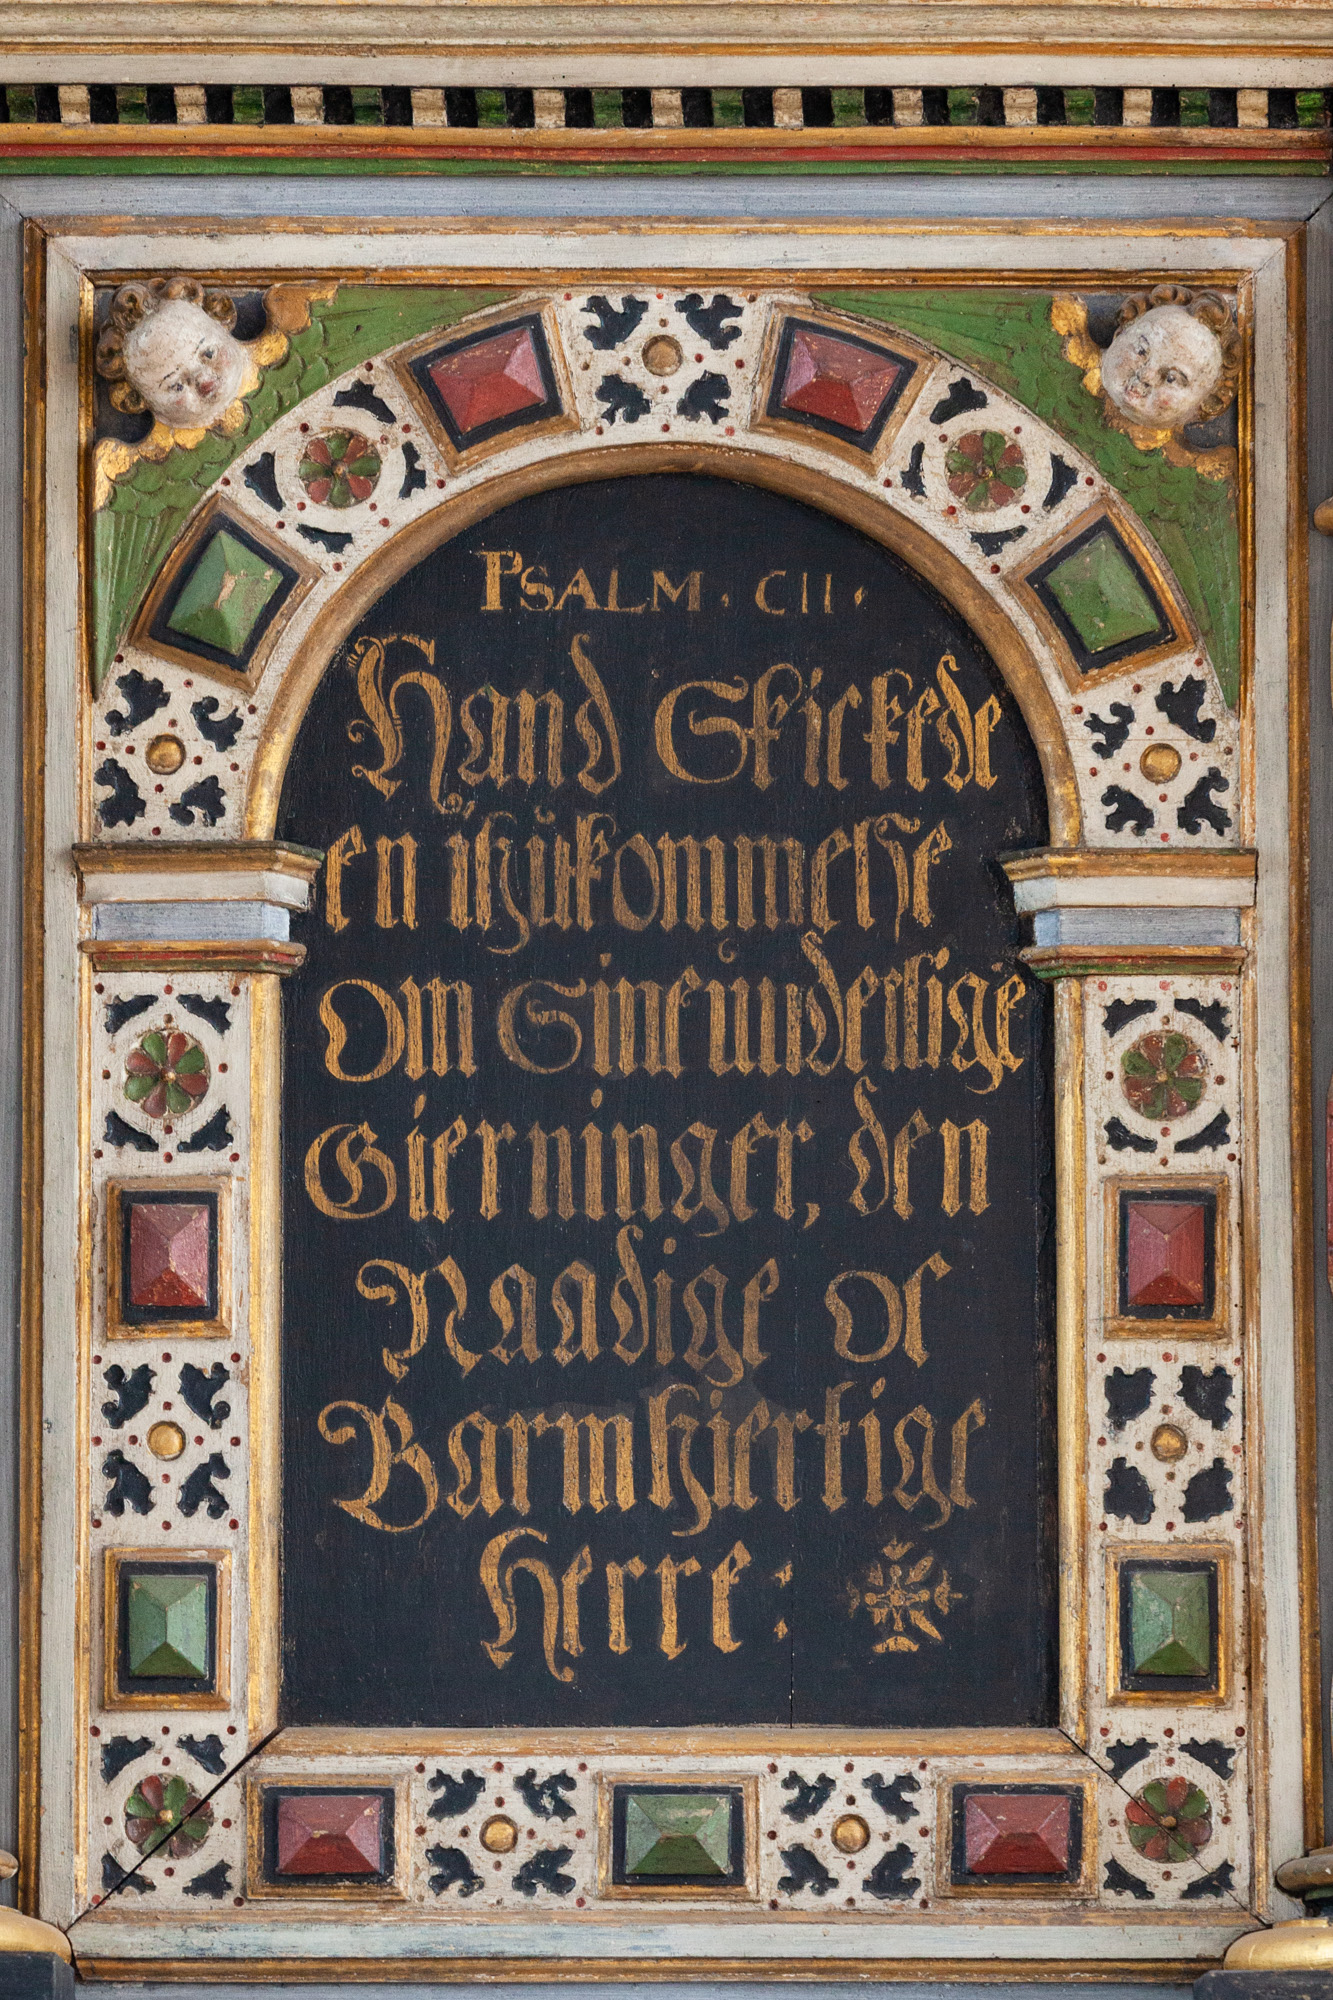 PSALM . CII .
Hand Skickede
en ihŭkommelse
Om Sine ŭnderlige
Gierninger, den
Naadige oc
Barmhiertige
Herre :